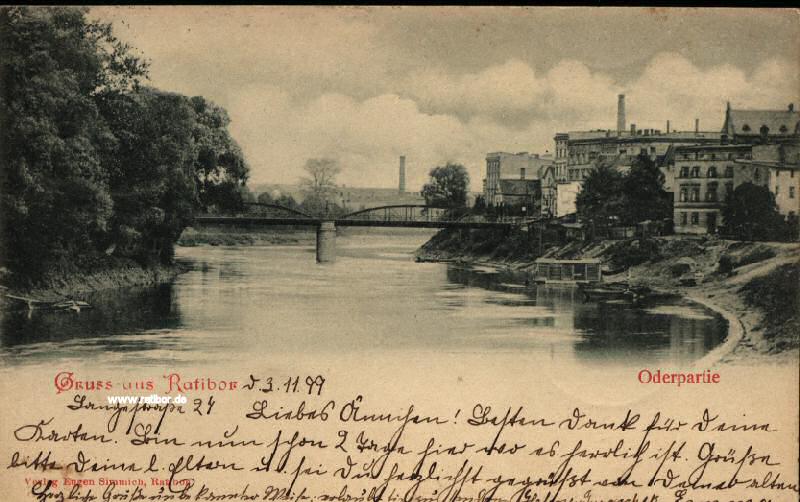 Gruss aus Ratibor d. 3. 11. 99
Oderpartie
www.ratibor.de
Langestraße 24 Liebes Ännchen! Besten Dank für Deine
Karten. Bin nun schon 2 Tage hier wo es herrlich ist. Grüße
bitte Deine l. Eltern u. sei Du herzlichst gegrüßt von Deiner alten
Verlag Eugen Simmich, Ratibor.
Herzliche Grüße